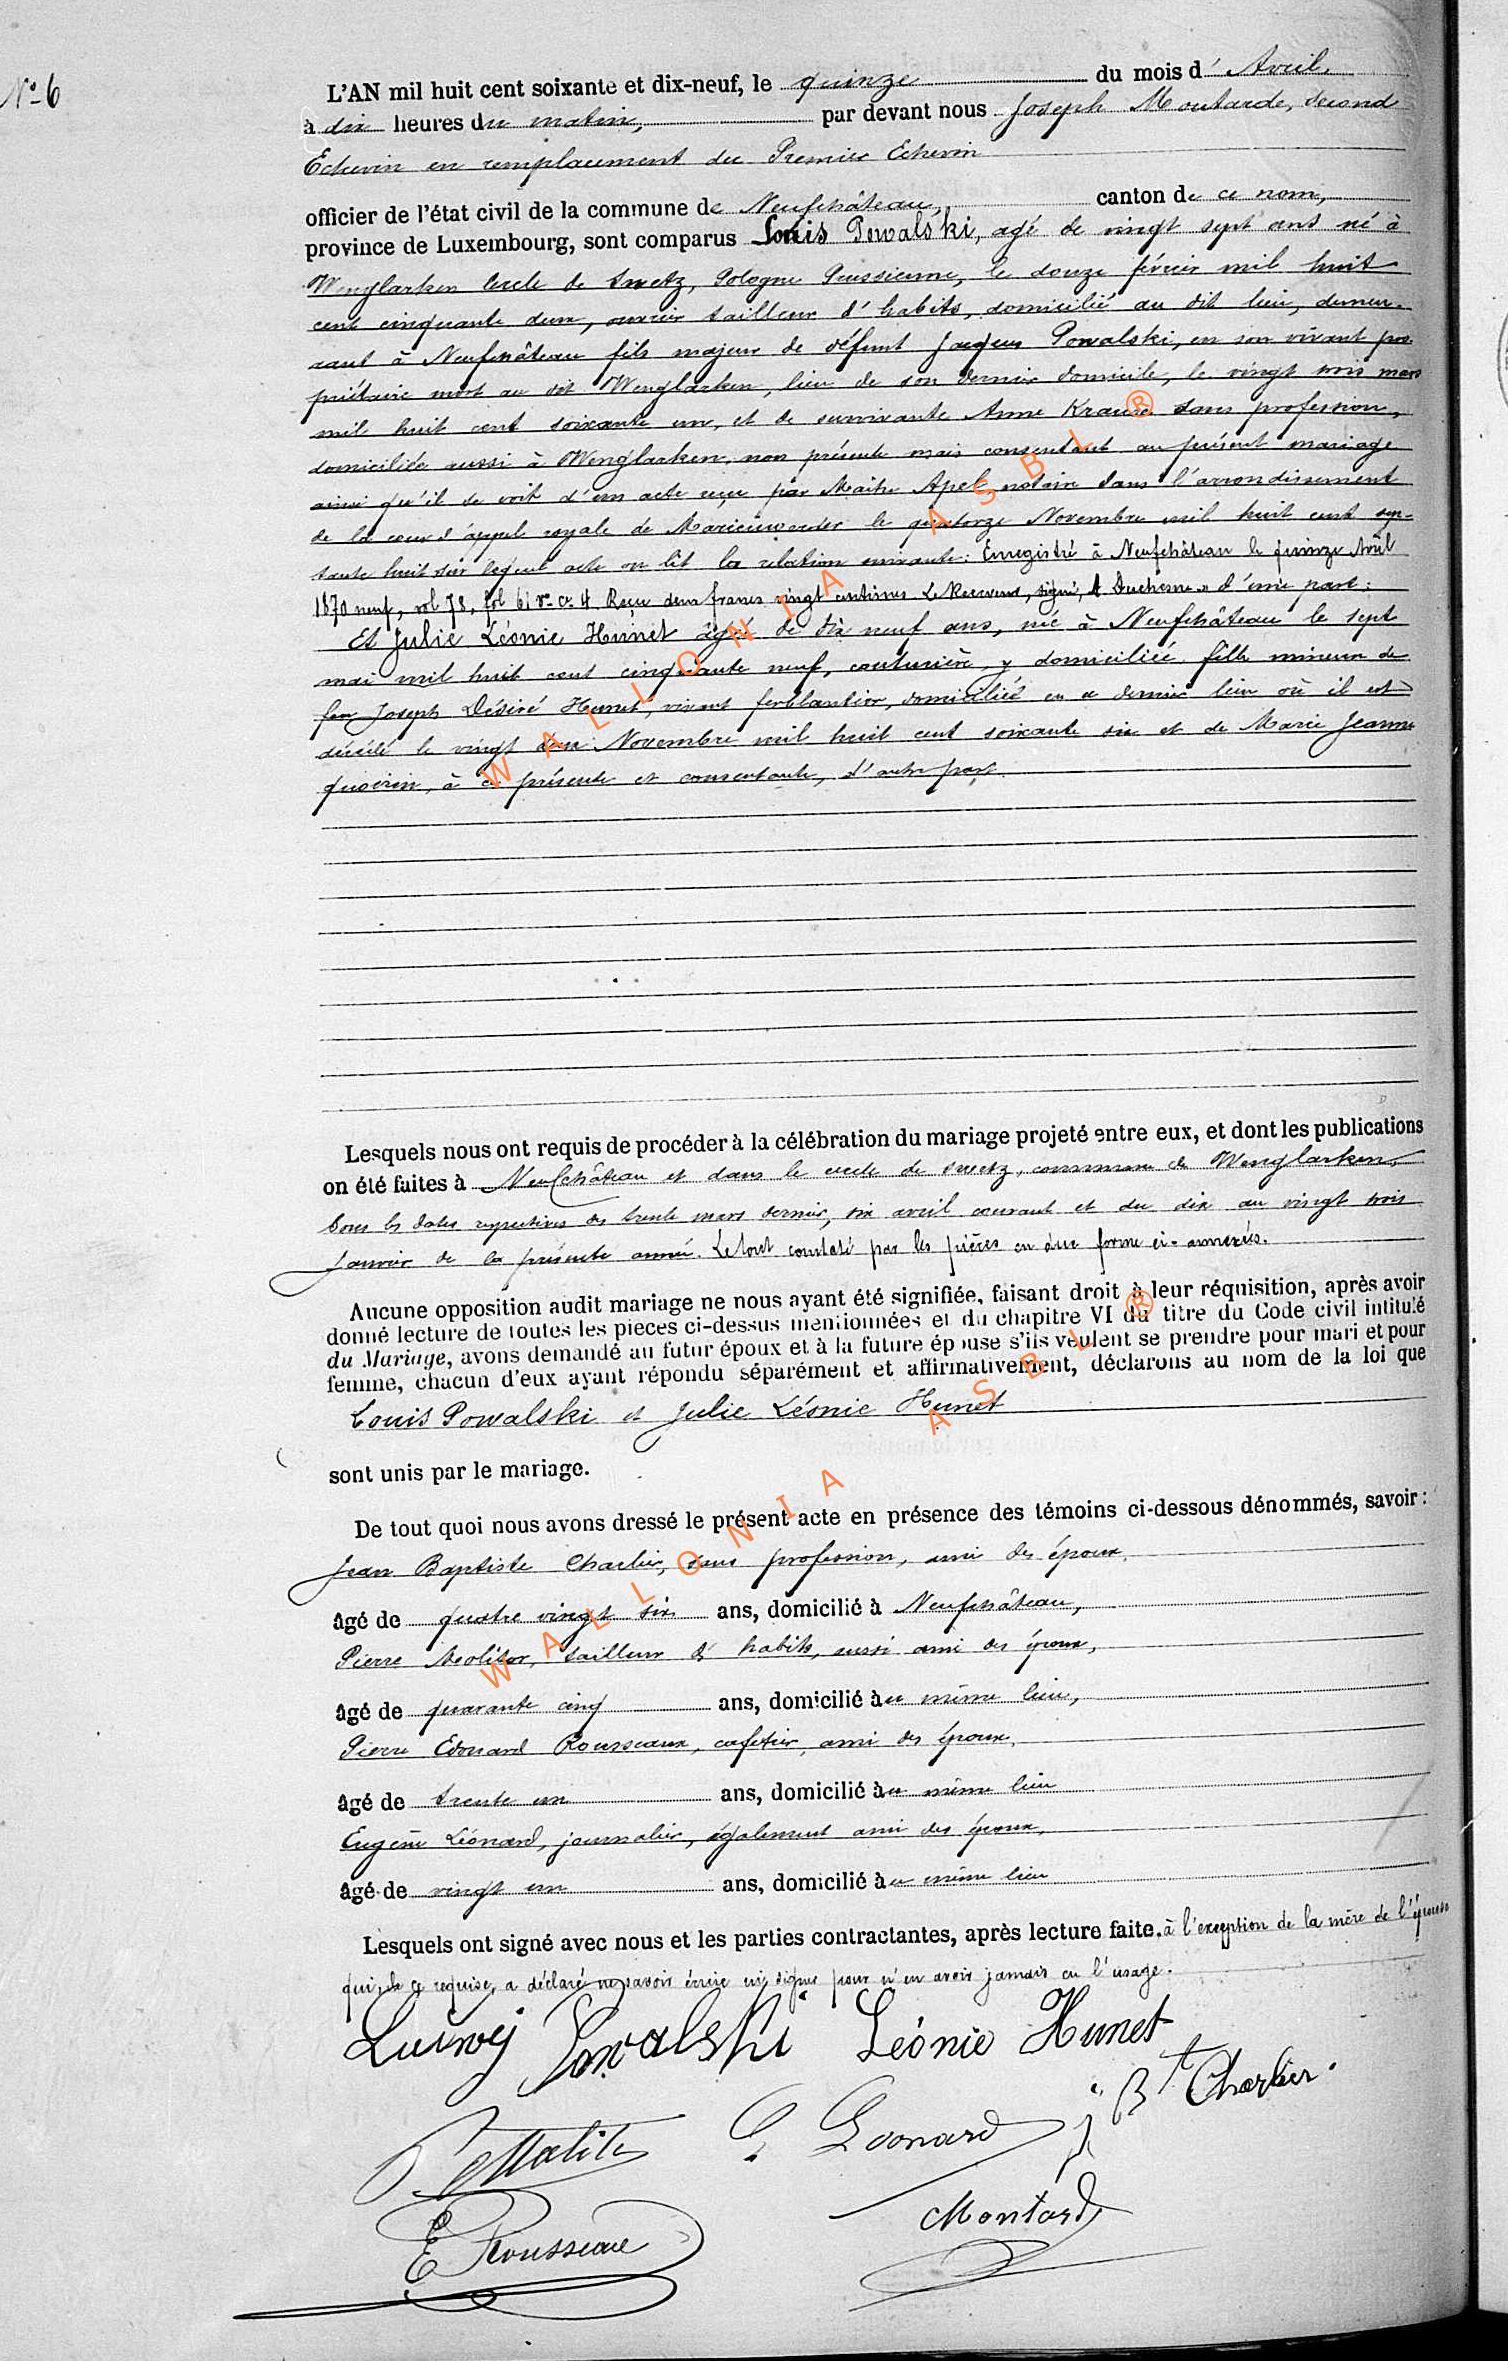 N° 6
L'AN mil huit cent soixante et dix-neuf, le quinze du mois d'Avril,
à dix heures du matin, par devant nous Joseph Moutarde, second
Echevin en remplacement du Premier Echevin
officier de l'état civil de la commune de Neufchâteau, canton de ce nom,
province de Luxembourg, sont comparus Louis Powalski, agé de vingt sept ans né à
Wenglarken cercle de Swetz, Pologne Prussienne, le douze février mil huit
cent cinquante deux, ouvrier tailleur d'habits, domicilié au dit lieu, demeu-
rant à Neufchâteau fils majeur de défunt Jacques Powalski, en son vivant pro-
priétaire mort au dit Wenglarken, lieu de son dernier domicile, le vingt trois mars
mil huit cent soixante un, et de survivante Anne Krause sans profession,
domiciliée aussi à Wenglarken, non présente mais consentant au présent mariage
ainsi qu'il se voit d'un acte reçu par Maître Apel notaire dans l'arrondissement
de la cour d'appel royale de Marienwerder le quatorze Novembre mil huit cent sep-
tante huit sur lequel acte on lit la relation suivante: Enregistré à Neufchâteau le quinze Avril
1870 neuf, vol 78, fol 61 v° c. 4 Reçu deux francs vingt centimes Le Receveur, signé, A Duchesne » d'une part;
Et Julie Léonie Hunet âgée de dix neuf ans, née à Neufchâteau le sept
mai mil huit cent cinquante neuf, couturière, y domiciliée, fille mineure de
feu Joseph Désiré Hunet, vivant ferblantier, domicilié en ce dernier lieu où il est
décédé le vingt deux Novembre mil huit cent soixante six et de Marie Jeanne
Guérin, à ce présente et consentante, d'autre part.
Lesquels nous ont requis de procéder à la célébration du mariage projeté entre eux, et dont les publications
on été faites à Neufchâteau et dans le cercle de Swetz, commune de Wenglarken,
sous les dates respectives des trente mars dernier, six avril courant et du dix au vingt trois
Janvier de la présente année. Le tout constaté par les pièces en due forme ci-annexés.
Aucune opposition audit mariage ne nous ayant été signifiée, faisant droit à leur réquisition, après avoir
donné lecture de toutes les pieces ci-dessus mentionnées et du chapitre VI du titre du Code civil intitulé
du Mariage, avons demandé au futur époux et à la future épouse s'ils veulent se prendre pour mari et pour
femme, chacun d'eux ayant répondu séparément et affirmativement, déclarons au nom de la loi que
Louis Powalski et Julie Léonie Hunet
sont unis par le mariage.
De tout quoi nous avons dressé le présent acte en présence des témoins ci-dessous dénommés, savoir :
Jean Baptiste Charlier, sans profession, ami des époux,
âgé de quatre vingt six ans, domicilié à Neufchâteau,
Pierre Molitor, tailleur d'habits, aussi ami des époux,
âgé de quarante cinq ans, domicilié au même lieu,
Pierre Edouard Rousseaux, cafetier, ami des époux,
âgé de trente un ans, domicilié au même lieu
Eugène Léonard, journalier, également ami des époux,
âgé de vingt un ans, domicilié au même lieu
Lesquels ont signé avec nous et les parties contractantes, après lecture faite, à l'exception de la mère de l'épouse
qui, de ce requise, a déclaré ne savoir écrire ni signer pour n'en avoir jamais eu l'usage.
Ludwig Powalski Léonie Hunet
J Bte Charlier
P. Molitor E Leonard
E Rousseaux Moutarde
WALLONIA ASBL ®
WALLONIA ASBL ®